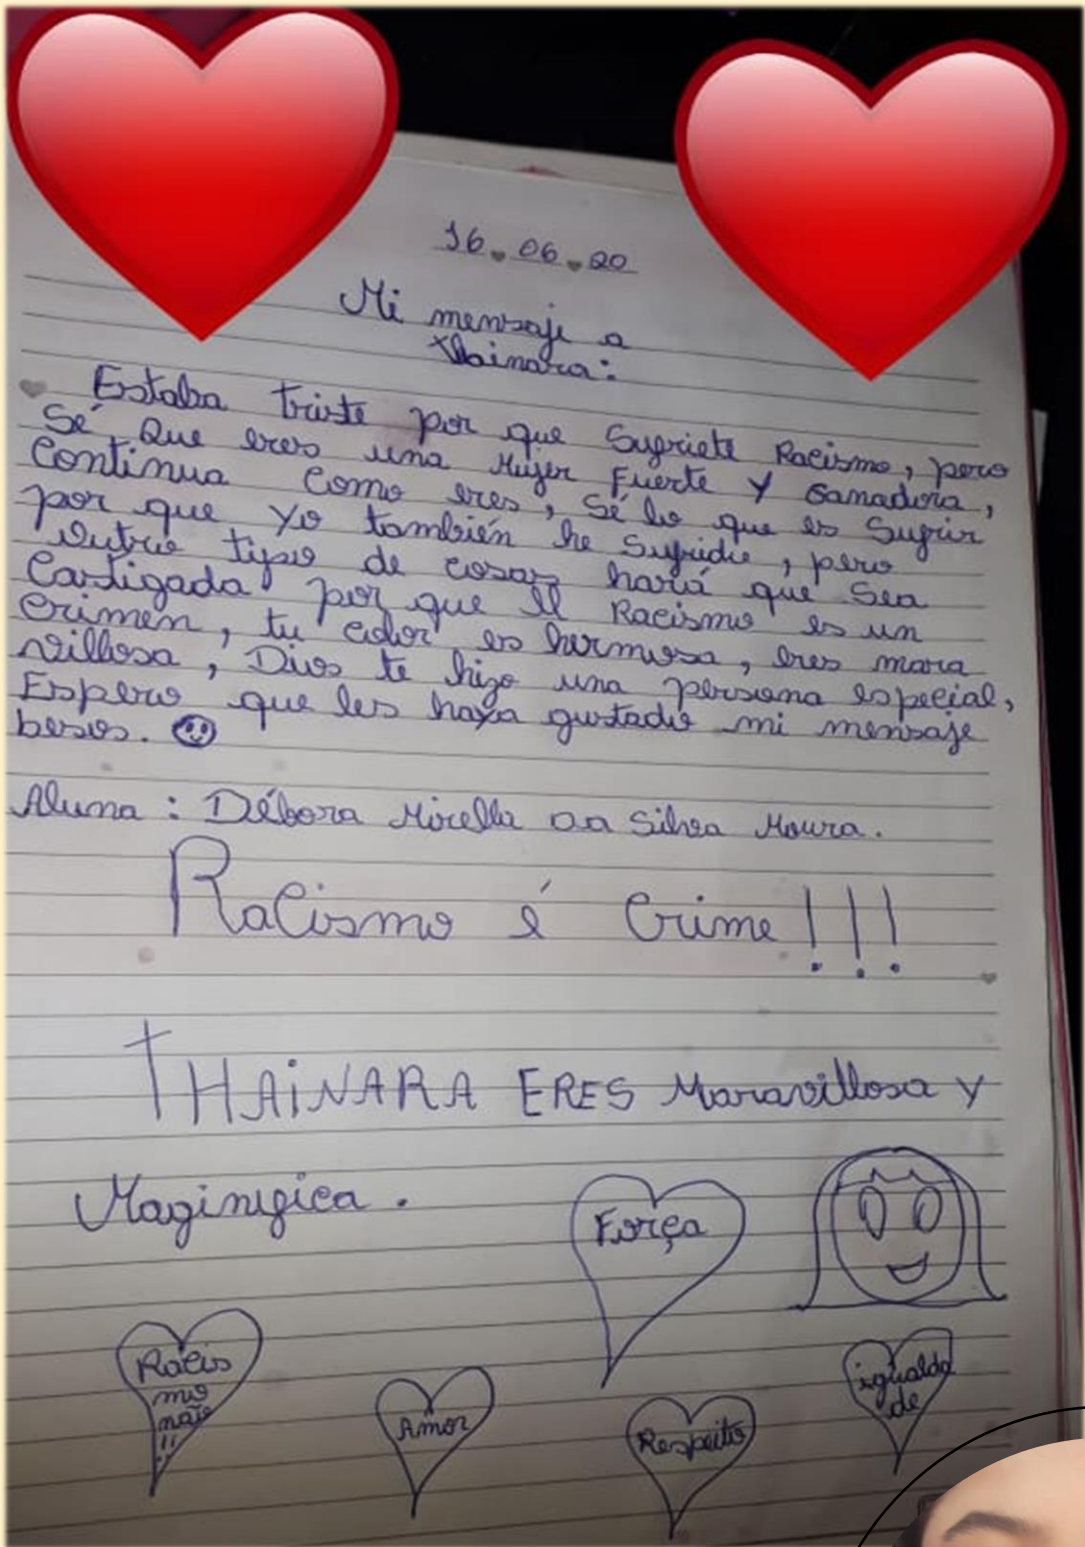 16.06.20
Mi mensaje a
Thainara:
Estaba triste por que Sufriete Racismo, pero
Sé Que eres una Mujer Fuerte y Ganadora,
Continua Como eres, Sé lo que es Sufrir
por que yo también he Sufrido, pero
Outro tipo de cosas hará que Sea
Castigada por que el Racismo es un
Crimen, tu color es hermosa, eres mara
villosa, Dios te hizo una persona especial,
Espero que les haya gustado mi mensaje
besos.
Aluna: Débora Mirella Da Silva Moura.
Racismo é Crime!!!
THAiNARA ERES Maravillosa y
Maginifica.
Força
Racis
mo
não
!!
Amor
Respeito
igualda
de